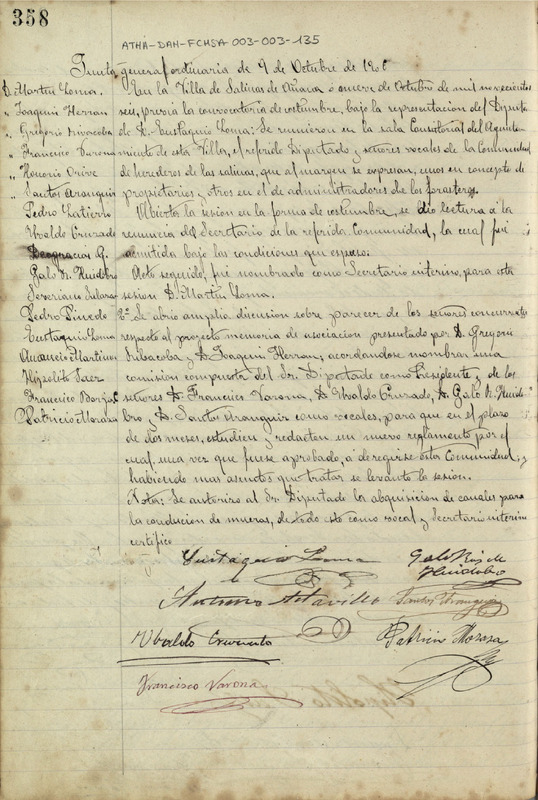 358
ATHA-DAH-FCHSA-003-003-135
Junta general ordinaria de 9 de Octubre de 1906
D. Martin Loma.
" Joaquin Herran
" Gregorio
" Francisco Varona
" Honorio Orive
" Santos Aranguiz
Pedro
Ubaldo Cruzado
Deogracias G.
Galo R. Huidobro
Severiano
Pedro Pinedo
Eustaquio Loma
Amancio Martinez
Hipolito Saez
Francisco Borja
Patricio Moraza
En la Villa de Salinas de Añana á nueve de Octubre de mil novecientos
seis, previa la convocatoria de costumbre, bajo la representacion del Diputado
de D. Eustaquio Loma: Se reunieron en la sala Consistorial del Ayunta-
miento de esta Villa, el referido Diputado y señores vocales de la Comunidad
de herederos de las salinas, que al margen se expresan, unos en concepto de
propietarios y otros en el de administradores de los forasteros.
Abierta la sesion en la forma de costumbre, se dio lectura á la
renuncia del Secretario de la referida Comunidad, la cual fué
admitida bajo las condiciones que expuso.
Acto seguido, fué nombrado como Secretario interino, para esta
sesion D. Martin Loma.
2º Se abrio amplia discusion sobre parecer de los señores concurrentes
respecto al proyecto memoria de asociacion presentado por D. Gregorio
y D. Joaquin Herran, acordandose nombrar una
comision compuesta del Sr. Diputado como Presidente y de los
señores D. Francisco Varona, D. Ubaldo Cruzado, D. Galo R. Huido-
bro y D. Santos Aranguiz como vocales, para que en el plazo
de dos meses, estudien y redacten un nuevo reglamento por el
cual una vez que fuese aprobado, á de regirse esta Comunidad, y
habiendo mas asuntos que tratar se levanto la sesion.
Nota: Se autorizo al Sr. Diputado la abquisicion de canales para
la conducion de mueras, de todo esto como vocal y Secretario interino
certifico
Eustaquio Loma
Galo Ruiz de
Huidobro
Santos Aranguiz
Ubaldo Cruzado
Patricio Moraza
Francisco Varona